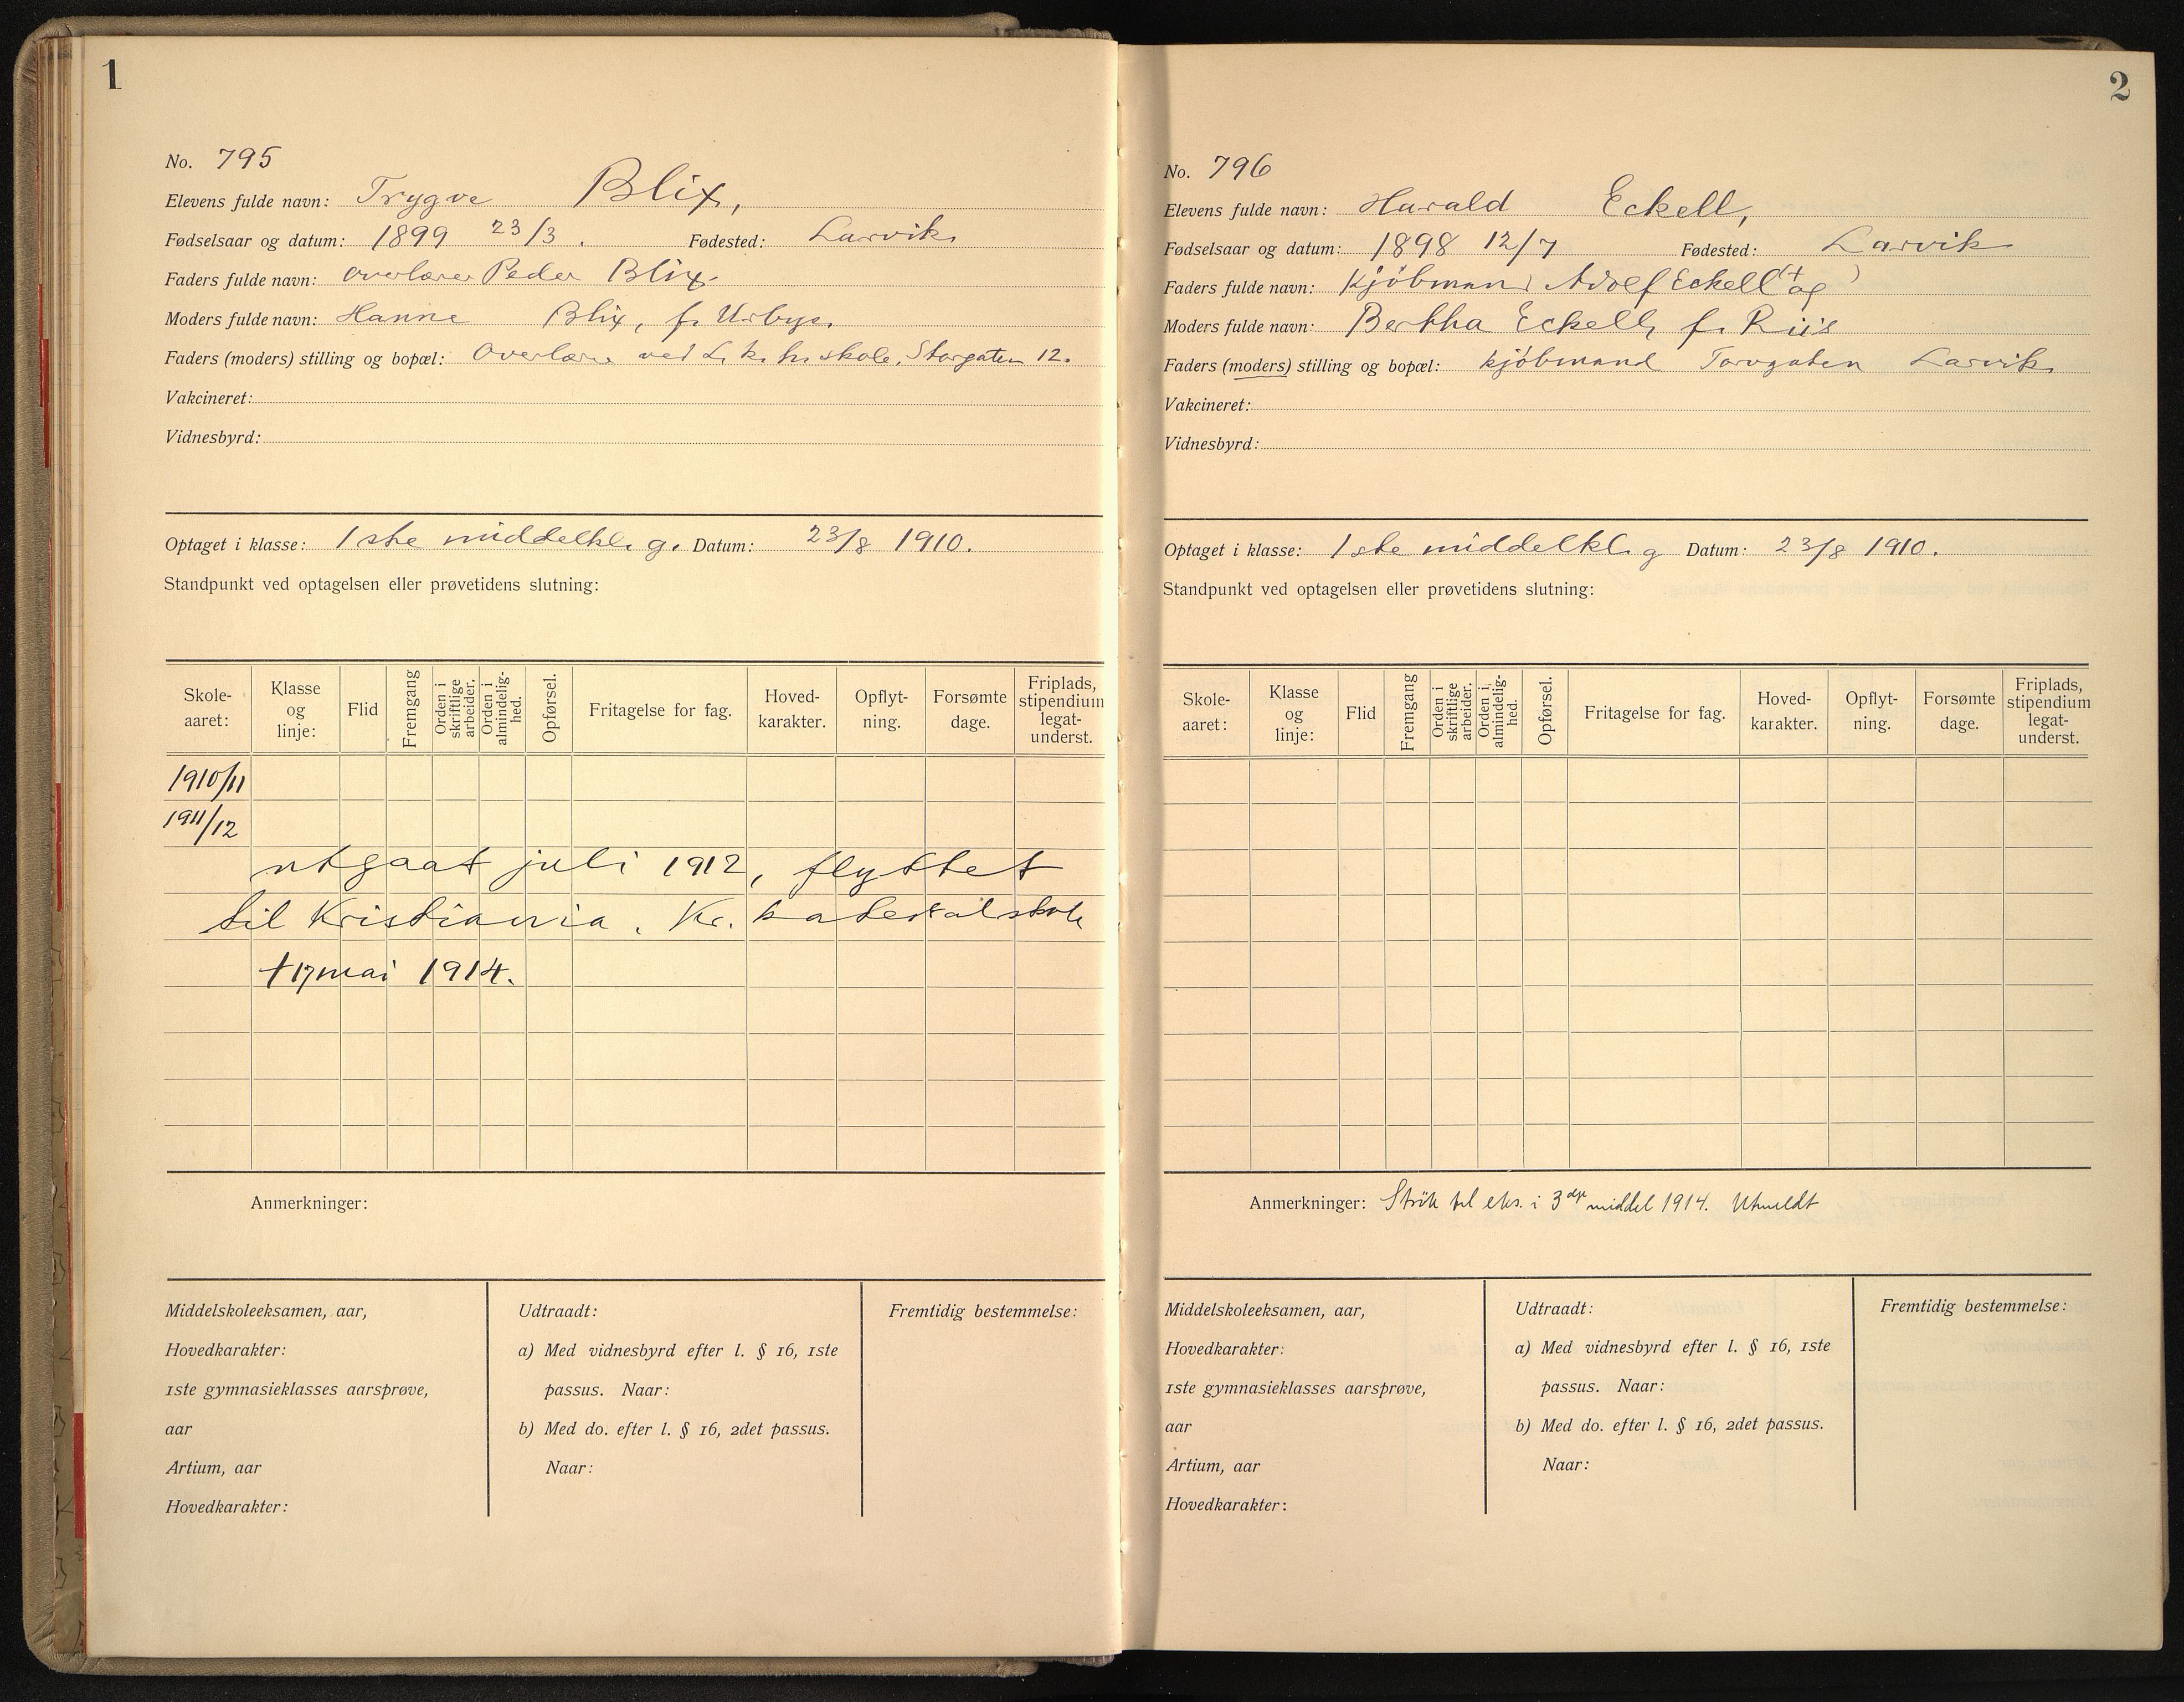 1
No. 795
Elevens fulde navn: Trygve Blix,
Fødselsaar og datum: 1899 23/3. Fødested: Larvik
Faders fulde navn: overlærer Peder Blix
Moders fulde navn: Hanna Blix, f.
Faders (moders) stilling og bopæl: Overlær. ved L. k. h. skole. Storgaten 12.
Vakcineret:
Vidnesbyrd:
Optaget i klasse: 1ste middelkl. g. Datum: 23/8 1910.
Standpunkt ved optagelsen eller prøvetidens slutning:
Skole-
aaret:
Klasse
og
linje:
Flid
Fremgang
Orden i
skriftlige
arbeider.
Orden i
almindelig-
hed.
Opførsel.
Fritagelse for fag.
Hoved-
karakter.
Opflyt-
ning.
Forsømte
dage.
Friplads,
stipendium
legat-
underst.
1910/11
1911/12
utgaat juli 1912, flyttet
til Kristiania. Kr. katedralskole
† 17 mai 1914.
Anmerkninger:
Middelskoleeksamen, aar,
Hovedkarakter:
1ste gymnasieklasses aarsprøve,
aar
Artium, aar
Hovedkarakter:
Udtraadt:
a) Med vidnesbyrd efter l. § 16, 1ste
passus. Naar:
b) Med do. efter l. § 16, 2det passus.
Naar:
Fremtidig bestemmelse:
2
No. 796
Elevens fulde navn: Harald Eckell,
Fødselsaar og datum: 1898 12/7 Fødested: Larvik
Faders fulde navn: Kjöbmand Adolf Eckell (†) og
Moders fulde navn: Bertha Eckell, f. Riis
Faders (moders) stilling og bopæl: kjöbmand Torvgaten Larvik
Vakcineret:
Vidnesbyrd:
Optaget i klasse: 1ste middelkl. g Datum: 23/8 1910.
Standpunkt ved optagelsen eller prøvetidens slutning:
Skole-
aaret:
Klasse
og
linje:
Flid
Fremgang
Orden i
skriftlige
arbeider.
Orden i
almindelig-
hed.
Opførsel.
Fritagelse for fag.
Hoved-
karakter.
Opflyt-
ning.
Forsømte
dage.
Friplads,
stipendium
legat-
underst.
Anmerkninger: Strök til eks. i 3dje middel 1914. Utmeldt
Middelskoleeksamen, aar,
Hovedkarakter:
1ste gymnasieklasses aarsprøve,
aar
Artium, aar
Hovedkarakter:
Udtraadt:
a) Med vidnesbyrd efter l. § 16, 1ste
passus. Naar:
b) Med do. efter l. § 16, 2det passus.
Naar:
Fremtidig bestemmelse: